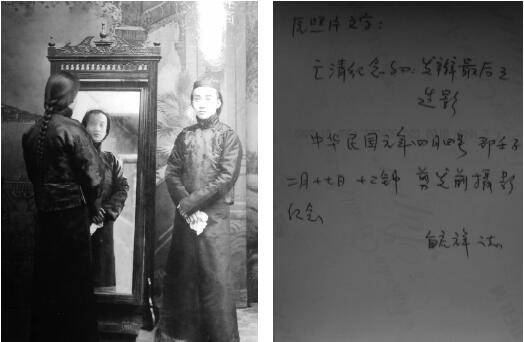 原照片文字：
亡清纪念 发辫最后之
造影
中华民国元年四月四号 即壬子
二月十七日 十二钟 剪发前摄影
纪念
祥 志